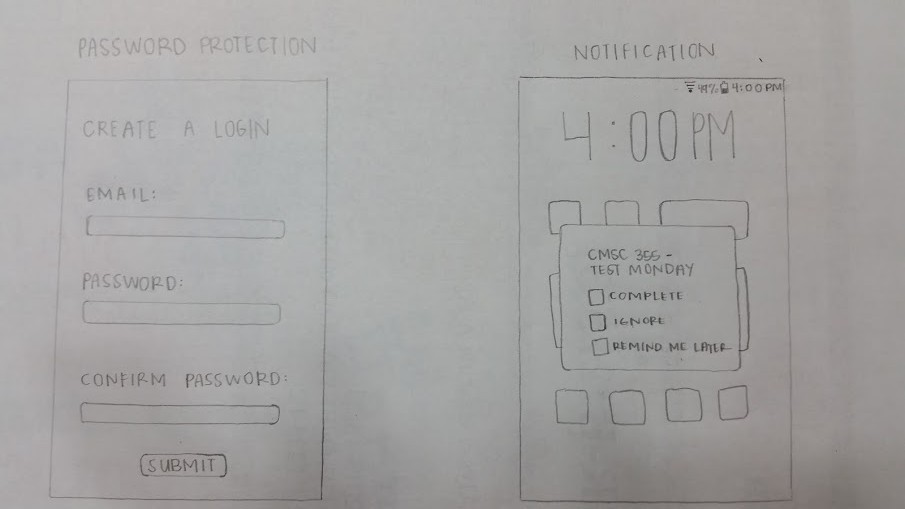 PASSWORD PROTECTION
CREATE A LOGIN
EMAIL:
PASSWORD:
CONFIRM PASSWORD:
SUBMIT
NOTIFICATION
49% 4:00PM
4:00PM
CMSC 355 -
TEST MONDAY
COMPLETE
IGNORE
REMIND ME LATER